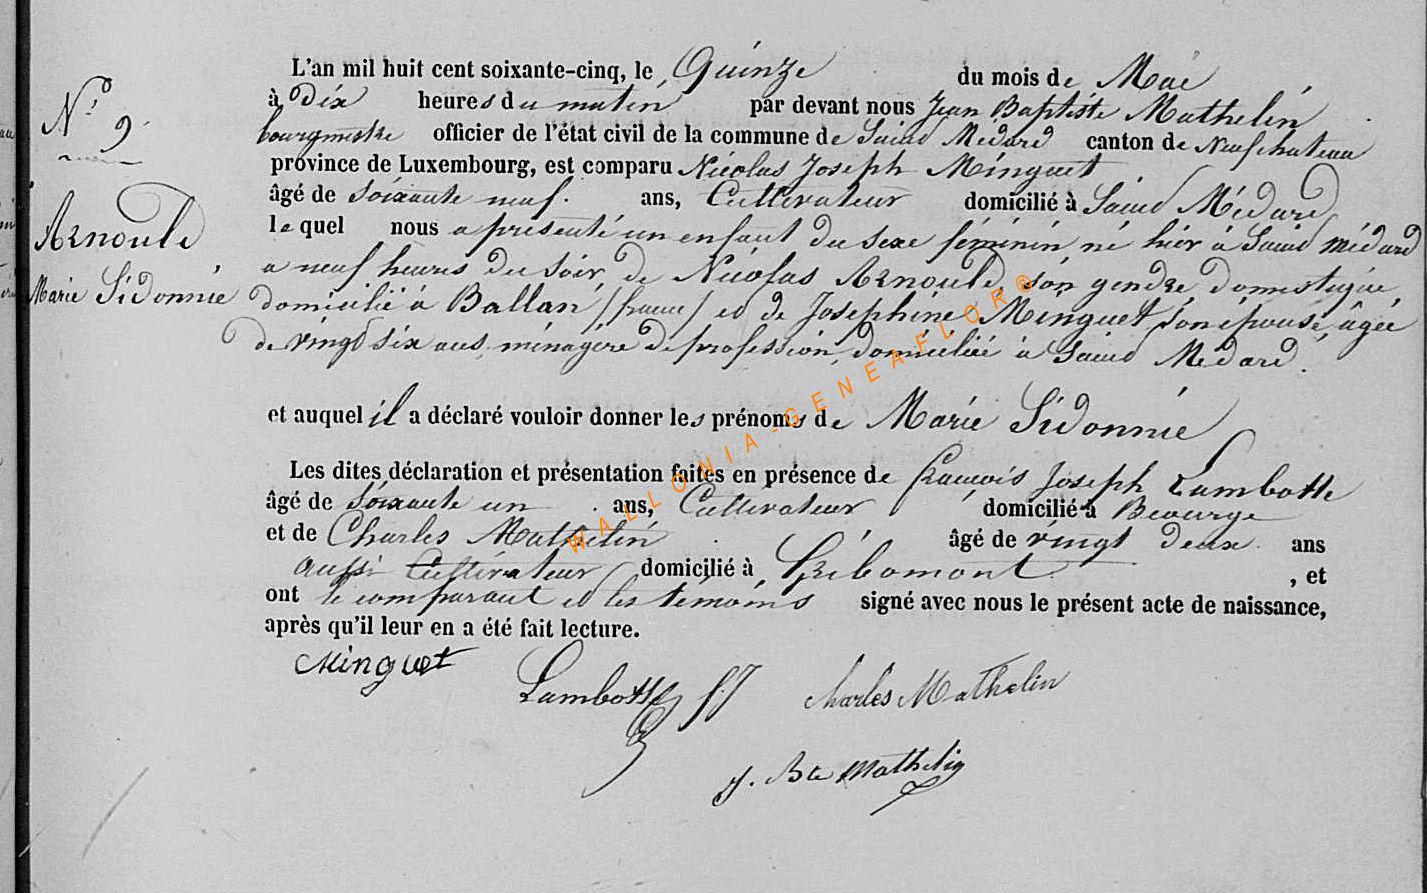 N.º 9.
Arnould
Marie Sidonnie
L'an mil huit cent soixante-cinq, le Quinze du mois de Mai
à dix heures du matin par devant nous Jean Baptiste Mathelin
bourgmestre officier de l'état civil de la commune de Saint Médard canton de Neufchateau
province de Luxembourg, est comparu Nicolas Joseph Minguet
âgé de soixante neuf. ans, Cultivateur domicilié à Saint Médard
le quel nous a présenté un enfant du sexe féminin né hier à Saint Médard
a neuf heures du soir, de Nicolas Arnould, son gendre, domestique,
domicilié à Ballan (france) et de Joséphine Minguet son épouse, âgée
de vingt six ans, ménagère de profession, domiciliée à Saint Médard.
et auquel il a déclaré vouloir donner les prénoms de Marie Sidonnie
Les dites déclaration et présentation faites en présence de françois Joseph Lambotte
âgé de soixante un ans, Cultivateur domicilié à
et de Charles Mathelin âgé de vingt deux ans
aussi Cultivateur domicilié à Gribomont , et
ont le comparant et les témoins signé avec nous le présent acte de naissance,
après qu'il leur en a été fait lecture.
Minguet
Lambotte f. J Charles Mathelin
J. Bte Mathelin
WALLONIA-GENEAFLOR®